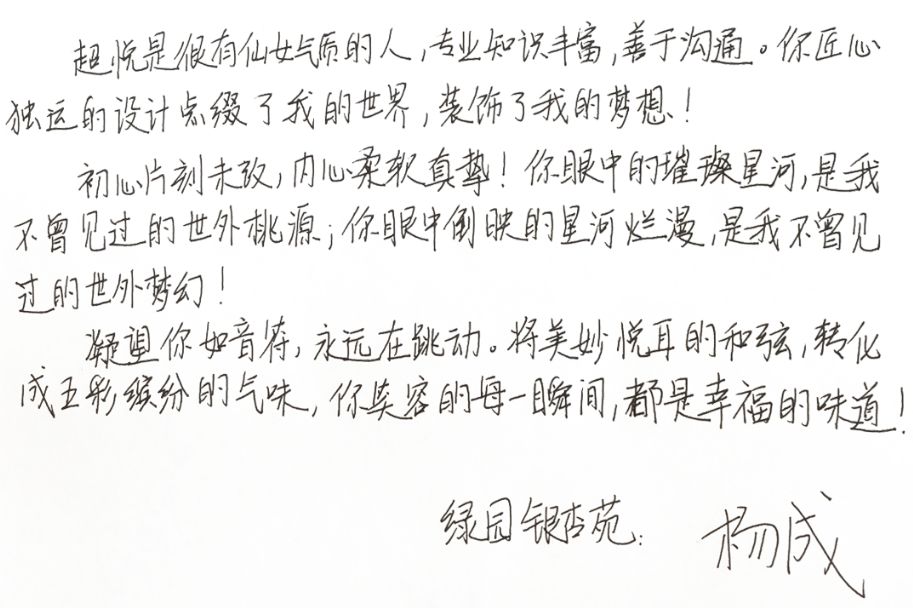 超悦是很有仙女气质的人,专业知识丰富,善于沟通。你匠心
独运的设计点缀了我的世界,装饰了我的梦想!
初心片刻未改,内心柔软真挚!你眼中的璀璨星河,是我
不曾见过的世外桃源;你眼中倒映的星河烂漫,是我不曾见
过的世外梦幻!
凝望你如音符,永远在跳动。将美妙悦耳的和弦,转化
成五彩缤纷的气味,你笑容的每一瞬间,都是幸福的味道!
绿园银杏苑: 杨成